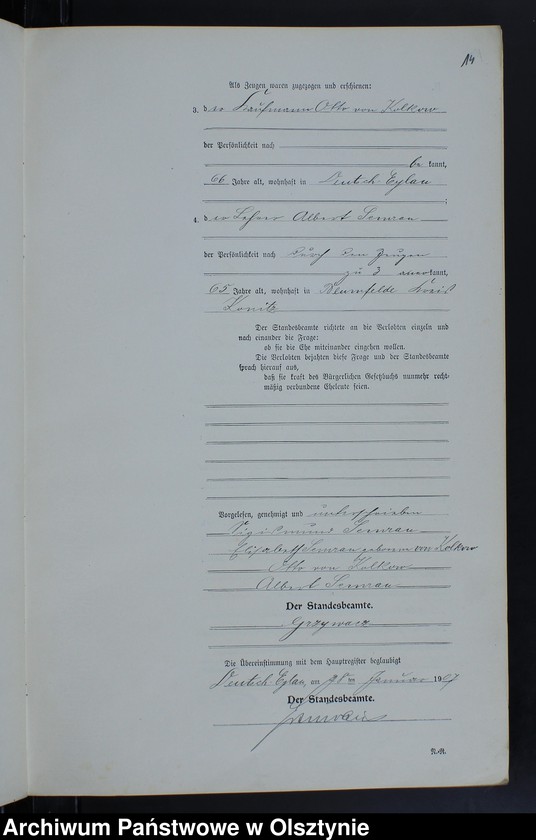 14
Als Zeugen waren zugezogen und erschienen:
3. der Kaufmann Otto von Kolkow
der Persönlichkeit nach
be kannt,
66 Jahre alt, wohnhaft in Deutsch-Eylau
;
4. der Lehrer Albert Semrau
der Persönlichkeit nach durch den Zeugen
zu 3 anerkannt,
65 Jahre alt, wohnhaft in Blumfelde Kreis
Konitz
Der Standesbeamte richtete an die Verlobten einzeln und
nach einander die Frage:
ob sie die Ehe miteinander eingehen wollen.
Die Verlobten bejahten diese Frage und der Standesbeamte
sprach hierauf aus,
daß sie kraft des Bürgerlichen Gesetzbuchs nunmehr recht-
mäßig verbundene Eheleute seien.
Vorgelesen, genehmigt und unterschrieben
Sigismund Semrau
Elisabeth Semrau geborene von Kolkow
Otto von Kolkow
Albert Semrau
Der Standesbeamte.
Grzywacz
Die Übereinstimmung mit dem Hauptregister beglaubigt
Deutsch-Eylau, am Januar 19
Der Standesbeamte.
N.-R.
Archiwum Państwowe w Olsztynie